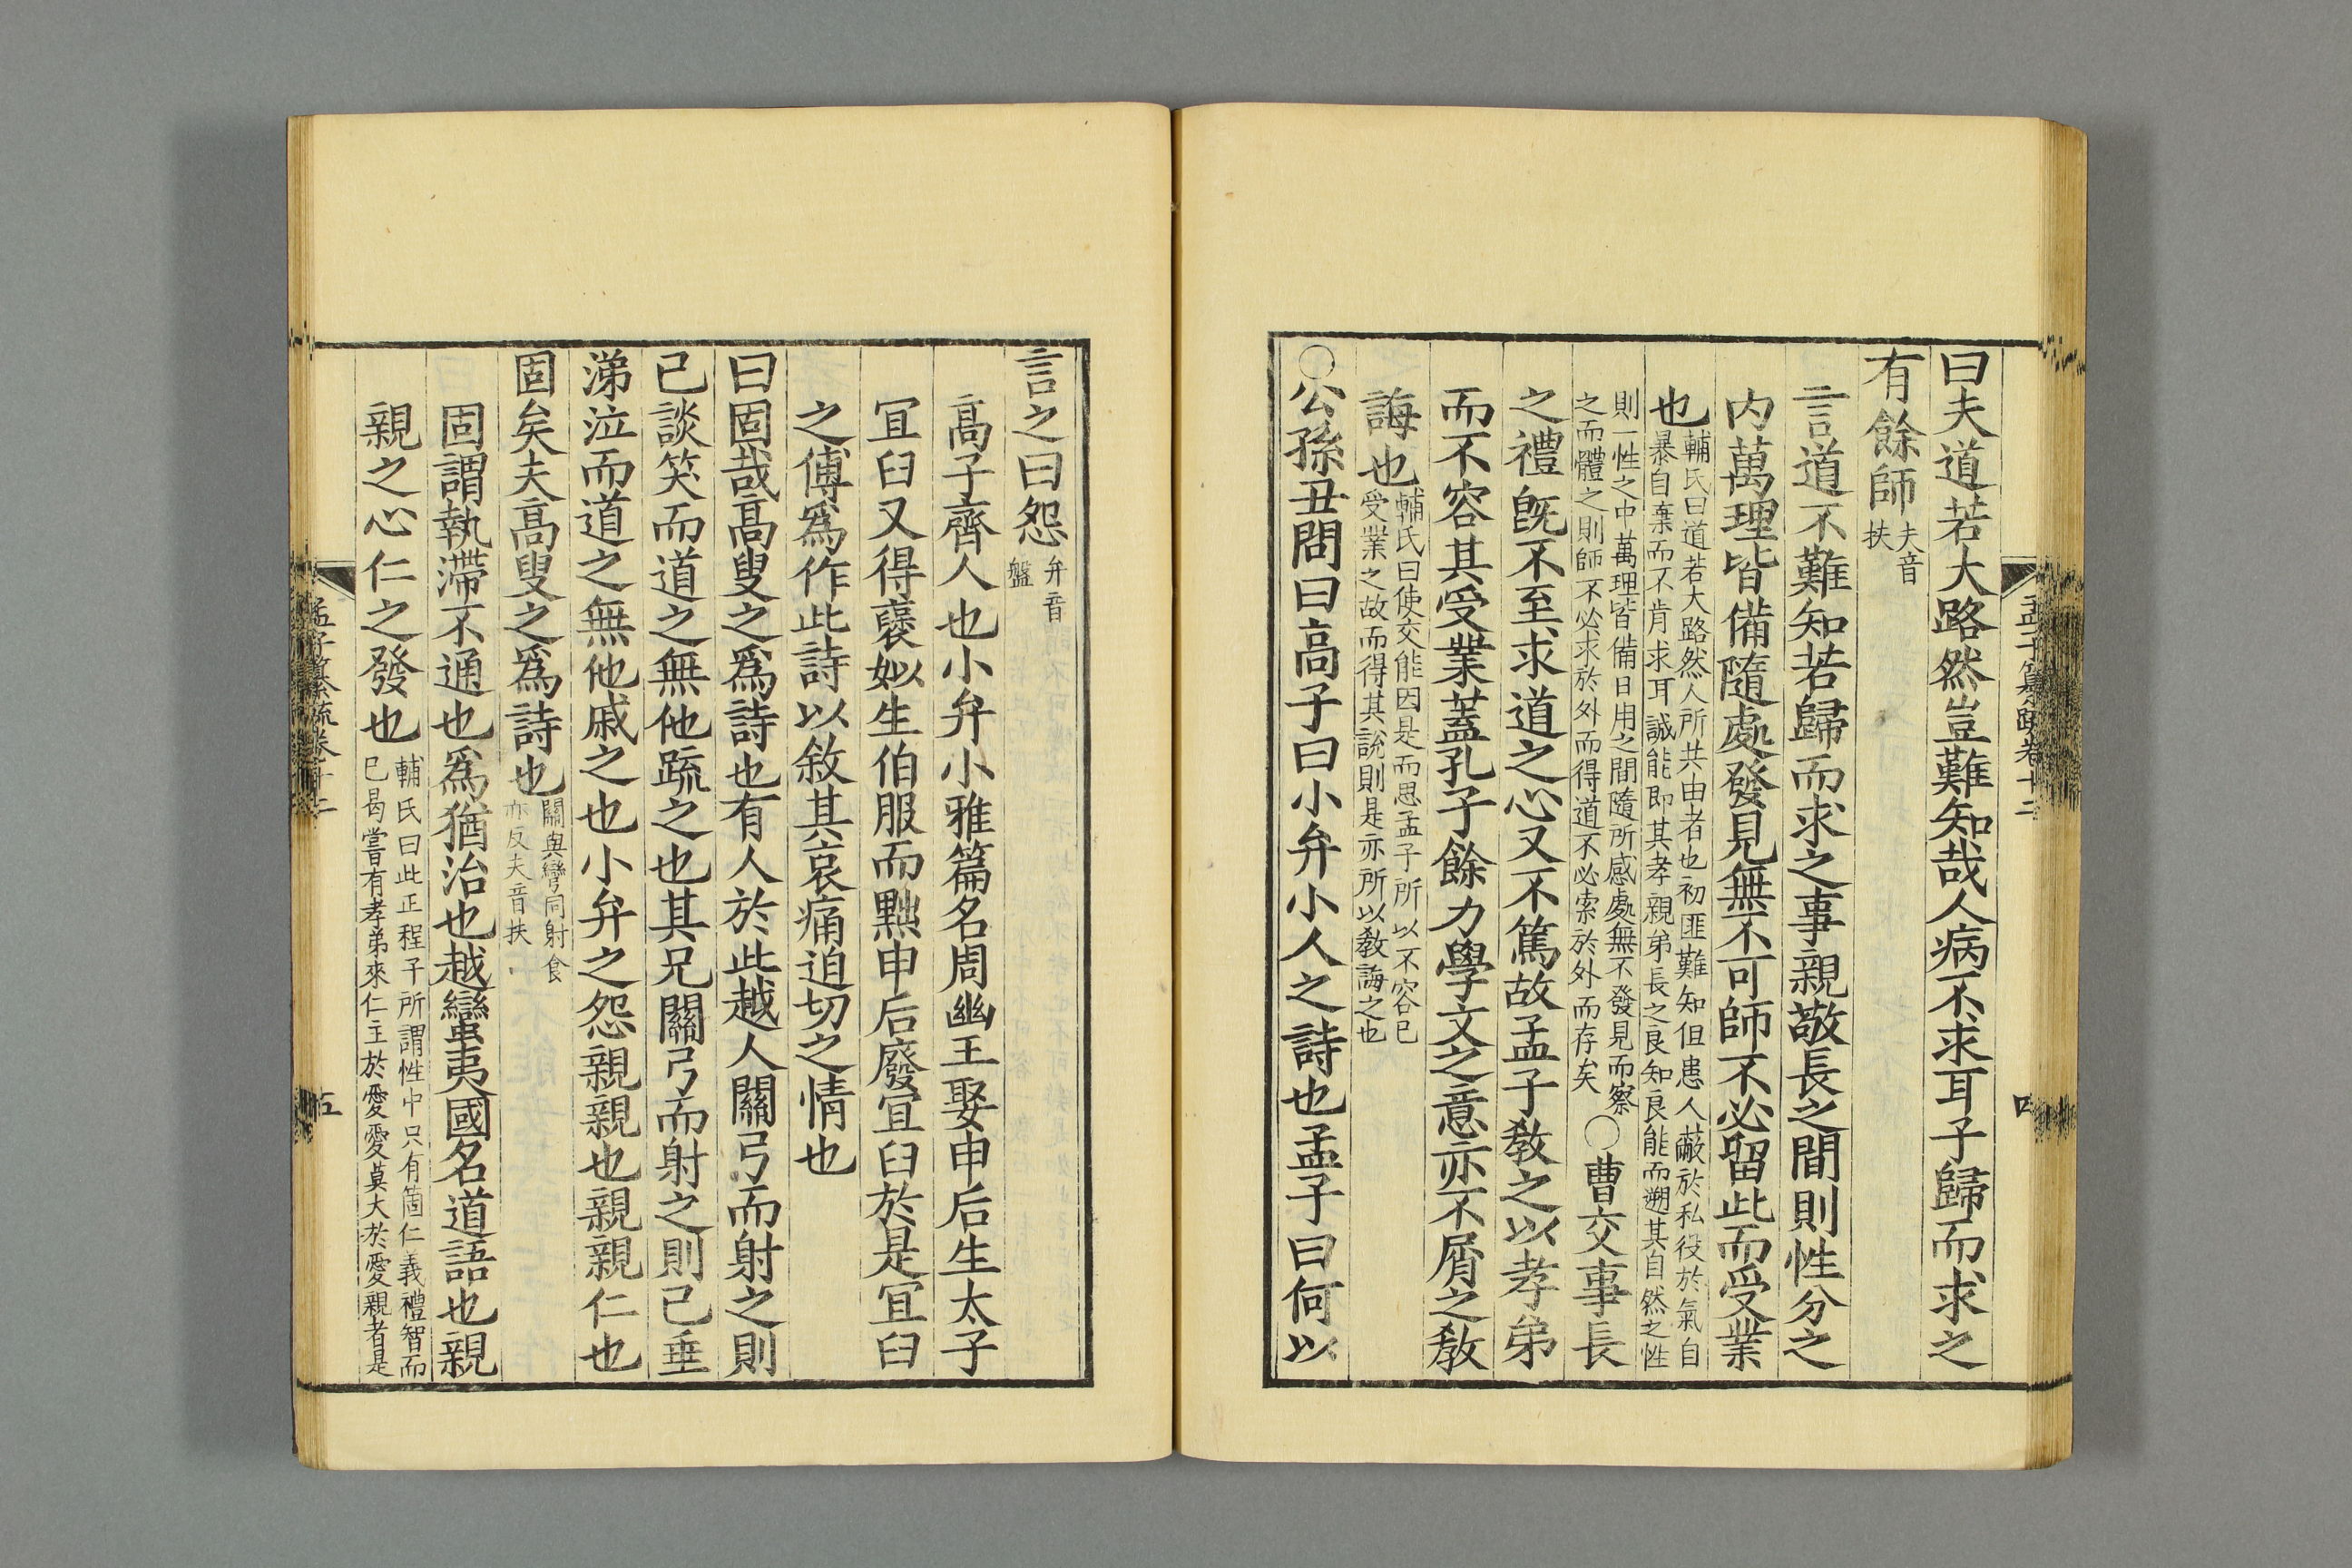 曰夫道若大路然豈難知哉人病不求耳子歸而求之
有餘師夫音
扶
言道不難知若歸而求之事親敬長之間則性分之
内萬理皆備隨處發見無不可師不必留此而受業
也輔氏曰道若大路然人所共由者也初匪難知但患人蔽於私役於氣自
暴自棄而不肯求耳誠能即其孝親弟長之良知良能而遡其自然之性
則一性之中萬理皆備日用之間隨所感處無不發見而察
之而體之則師不必求於外而得道不必索於外而存矣
○曹交事長
之禮旣不至求道之心又不篤故孟子敎之以孝弟
而不容其受業蓋孔子餘力學文之意亦不屑之敎
誨也輔氏曰使交能因是而思孟子所以不容已
受業之故而得其說則是亦所以敎誨之也
○公孫丑問曰高子曰小弁小人之詩也孟子曰何以
孟子纂疏卷十二
四
言之曰怨弁音
盤
高子齊人也小弁小雅篇名周幽王娶申后生太子
宜臼又得襃姒生伯服而黜申后廢宜臼於是宜臼
之傅爲作此詩以敘其哀痛迫切之情也
曰固哉高叟之爲詩也有人於此越人關弓而射之則
己談笑而道之無他疏之也其兄關弓而射之則己垂
涕泣而道之無他戚之也小弁之怨親親也親親仁也
固矣夫高叟之爲詩也關與彎同射食
亦反夫音扶
固謂執滯不通也爲猶治也越蠻夷國名道語也親
親之心仁之發也輔氏曰此正程子所謂性中只有箇仁義禮智而
已曷嘗有孝弟來仁主於愛愛莫大於愛親者是
孟子纂疏卷十二
五